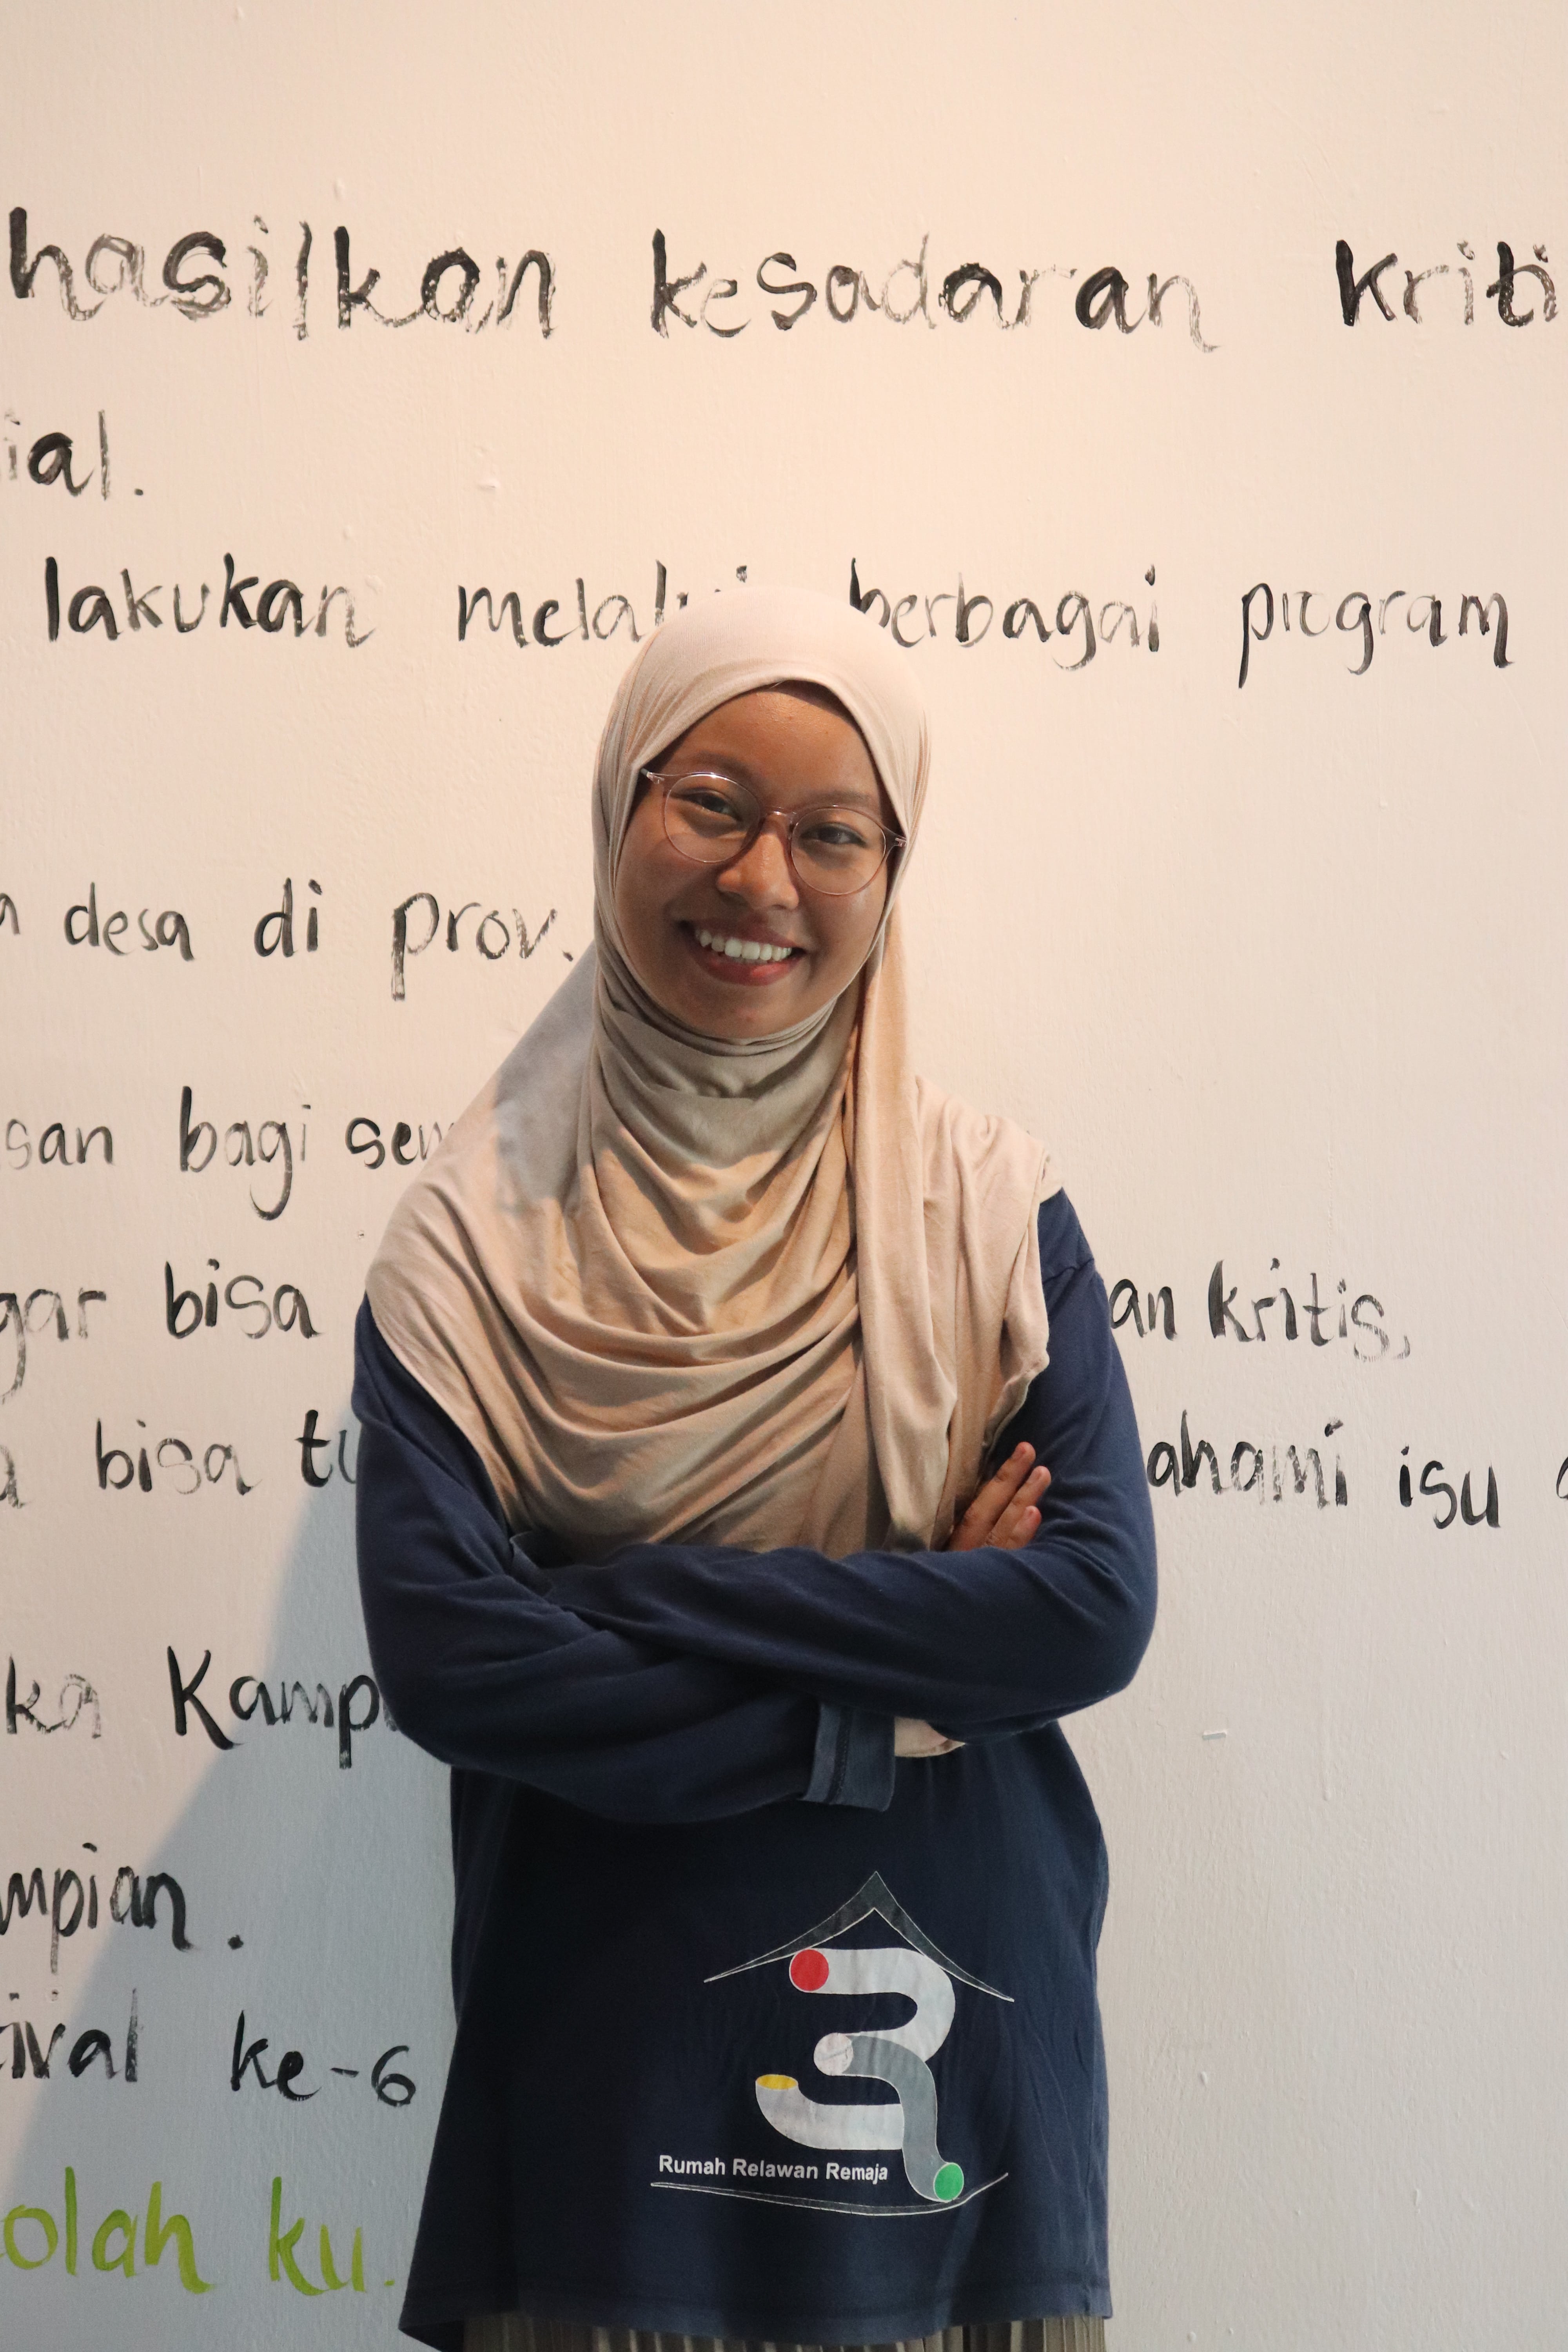 hasilkan kesadaran kriti
ial.
lakukan melalui berbagai program
desa di prov.
san bagi sem
gar bisa an kritis,
bisa tu ahami isu
ka Kamp
mpian.
tival ke-6
olah ku.
Rumah Relawan Remaja